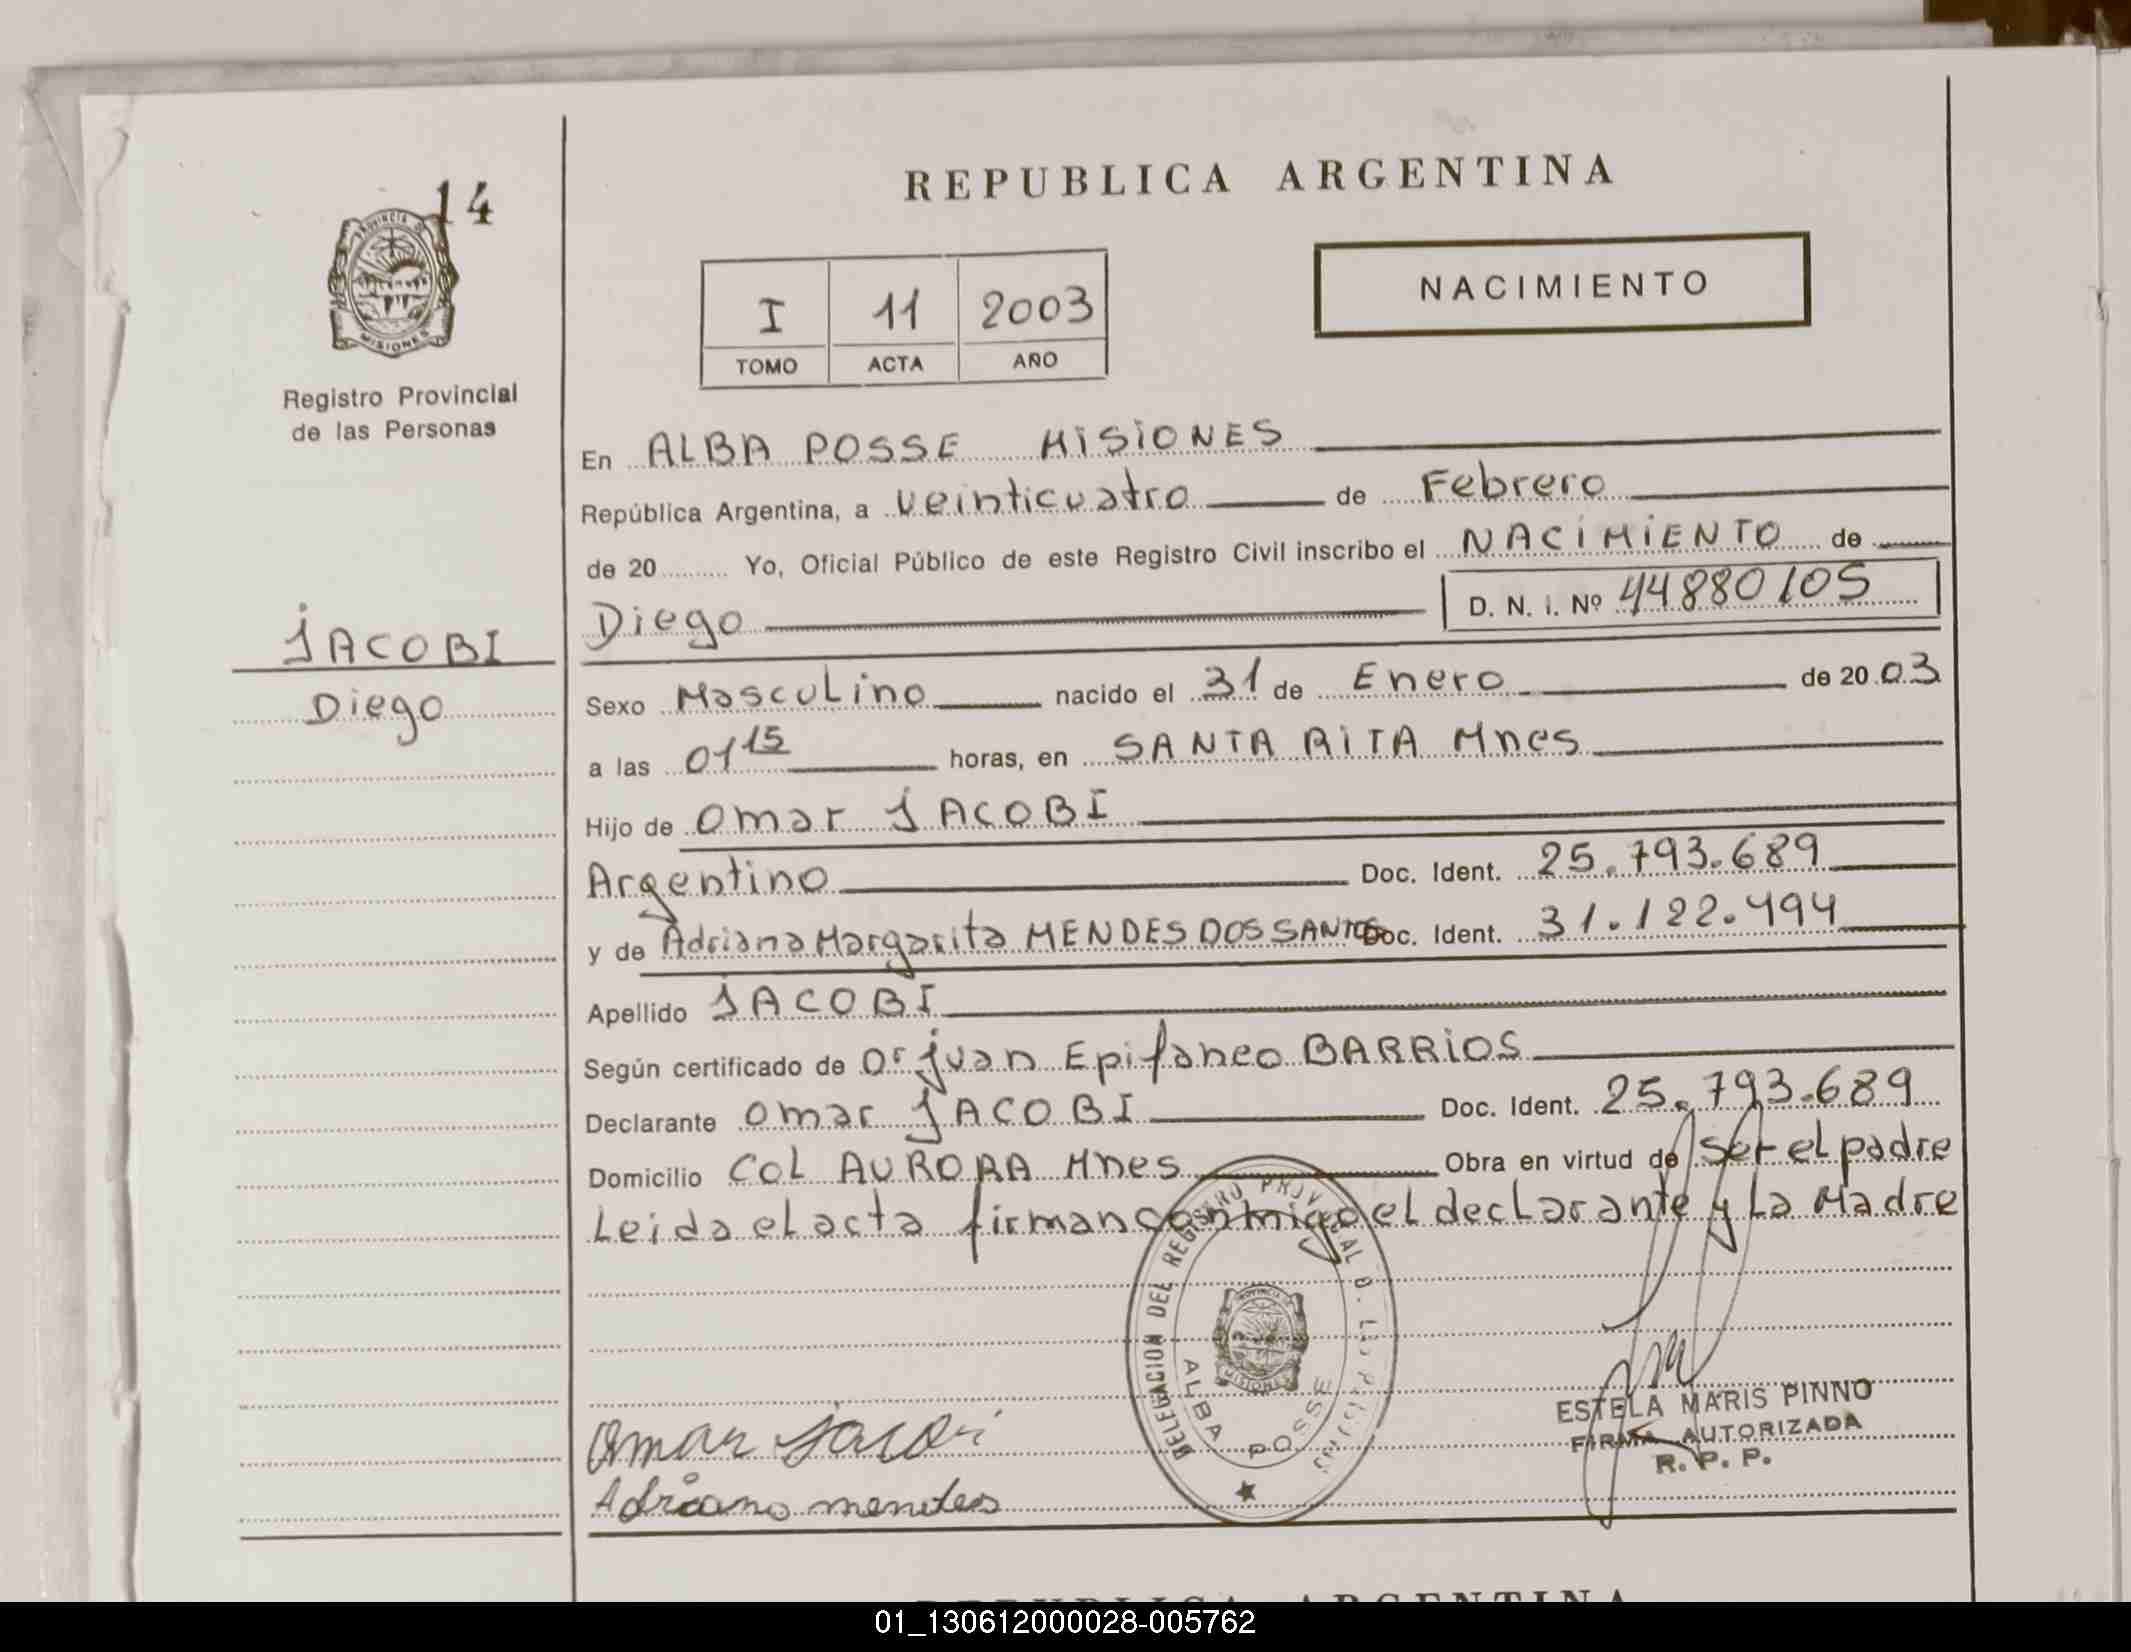 14
PROVINCIA DE
MISIONES
Registro Provincial
de las Personas
JACOBI
Diego
REPUBLICA ARGENTINA
I 11 2003
TOMO ACTA AÑO
NACIMIENTO
En ALBA POSSE MISIONES
República Argentina, a veinticuatro de Febrero
de 20 Yo, Oficial Público de este Registro Civil inscribo el NACIMIENTO de
Diego D. N. I. Nº 44880105
Sexo Masculino nacido el 31 de Enero de 2003
a las 01 15 horas, en SANTA RITA Mnes
Hijo de Omar JACOBI
Argentino Doc. Ident. 25.793.689
y de Adriana Margarita MENDES DOS SANTOS Doc. Ident. 31.122.494
Apellido JACOBI
Según certificado de Dr Juan Epifaneo BARRIOS
Declarante Omar JACOBI Doc. Ident. 25.793.689
Domicilio COL AURORA Mnes Obra en virtud de ser el padre
Leida el acta firman conmigo el declarante y La Madre
DELEGACION DEL REGISTRO PROVINCIAL D. LAS PERSONAS
PROVINCIA DE
MISIONES
ALBA POSSE
Omar Jacobi
Adriana mendes
ESTELA MARIS PINNO
FIRMA AUTORIZADA
R. P. P.
REPUBLICA ARGENTINA
01_130612000028-005762